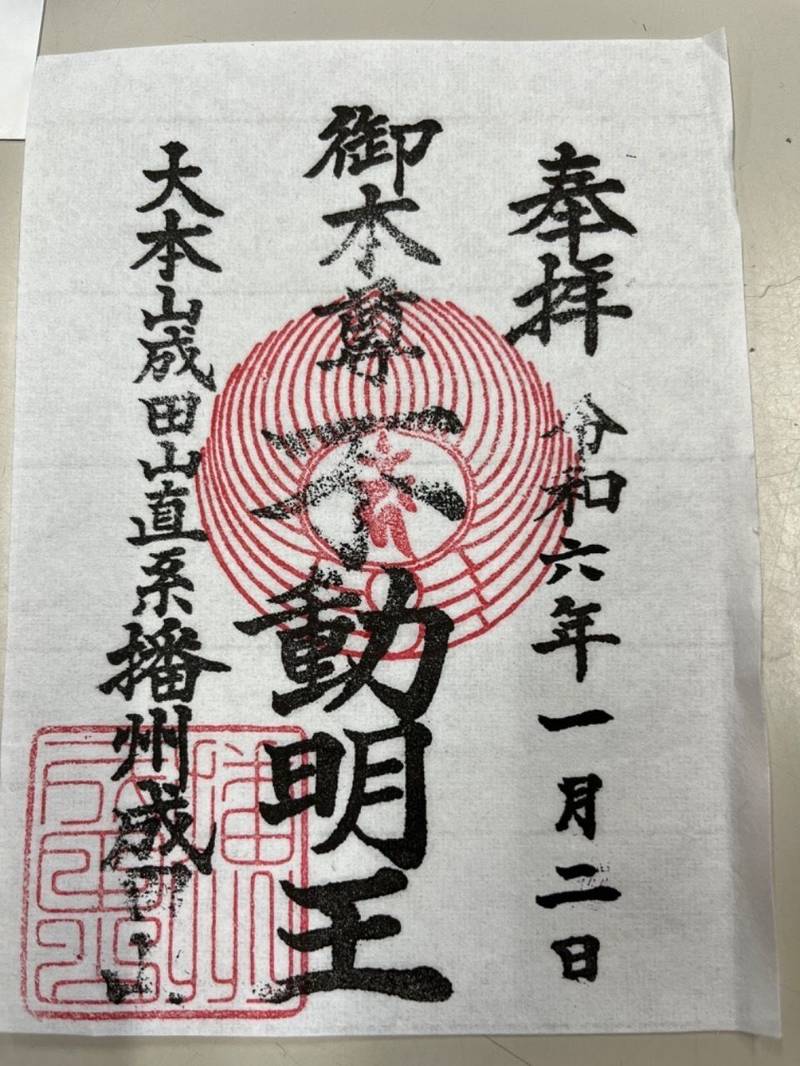 奉拝 令和六年一月二日
御本尊 不動明王
大本山成田山直系 播州成田山